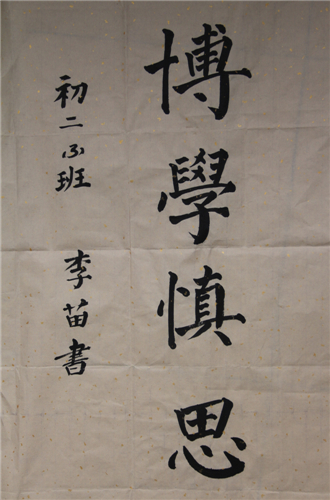 博學慎思
初二班 李苗書